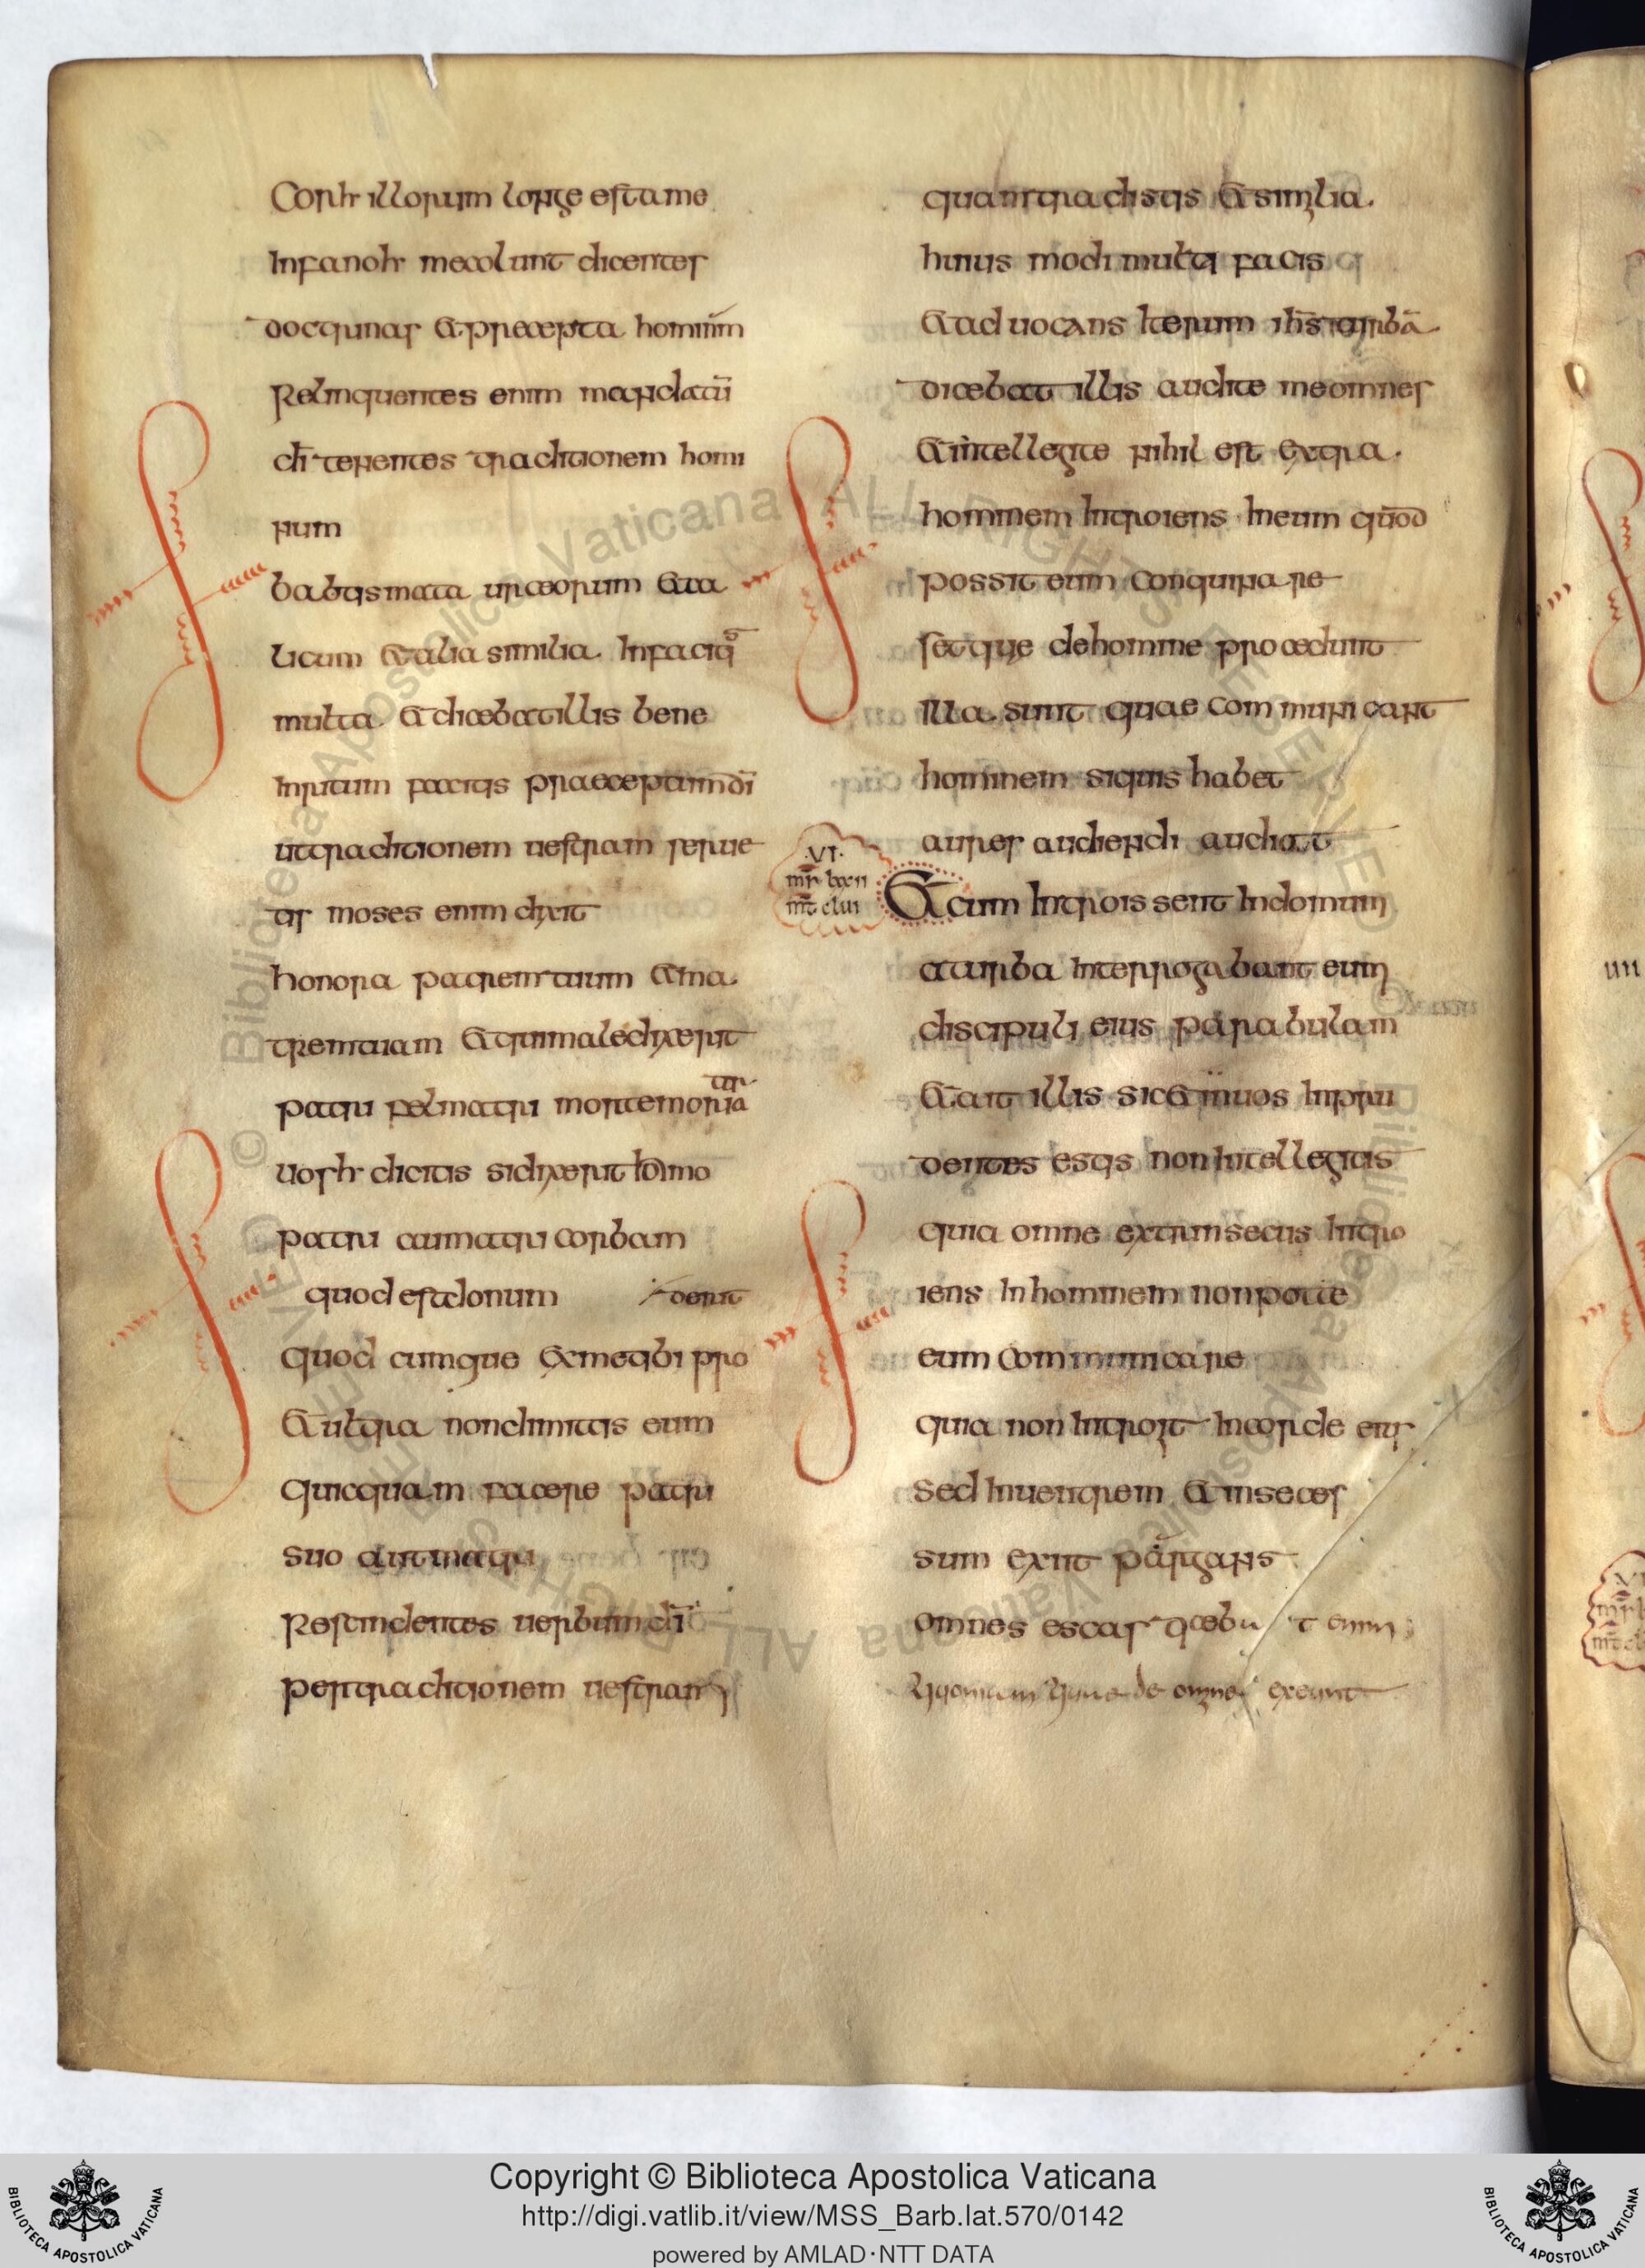 Cor h̄ illorum longe est a me
In fano h̄ me colunt dicentes
doctrinas et precepta hominum
Relinquentes enim mandatū
dī tenentes traditionem homi
num
babtismata urceorum et ca
licum et alia similia. Infacitis
multa. et dicebat illis bene
Inritum facitis praeceptum dī
ut traditionem uestram serue
tis moses enim dixit
honora patrem tuum et ma
trem tuam et qui maledixerit
patri uel matri morte moria
tur
uos h̄ dicitis si dixerit homo
patri aut matri corbam
quod est donum
quod cumque ex me tibi pro
derit
et ultra non dimittitis eum
quicquam facere patri
suo aut matri
Rescindentes uerbum dī
per traditionem uestram
quam tradistis et similia.
huius modi multa facitis
et ad uocans Iterum ih̄s turbā
dicebat illis audite me omnes
et intellegite nihil est extra
hominem Introiens In eum quod
possit eum conquinare
set que de homine procedunt
Illa sunt quae communicant
hominem siquis habet
aures audiendi audiat
.VI.
mr̄ lxxii
mt̄ clui
Et cum Introissent In domum
a turba Interrogabant eum
discipuli eius parabulam
et ait illis sic et uos Inpru
dentes estis non Intellegitis
quia omne extrinsecus Intro
iens In hominem non potte
eum communicare
quia non Introit In corde eius
sed In uentrem et in seces
sum exiit purgans
omnes escas dicebat enim
quoniam que de omine exeunt
Copyright © Biblioteca Apostolica Vaticana
http://digi.vatlib.it/view/MSS_Barb.lat.570/0142
powered by AMLAD·NTT DATA
BIBLIOTECA APOSTOLICA VATICANA
BIBLIOTECA APOSTOLICA VATICANA